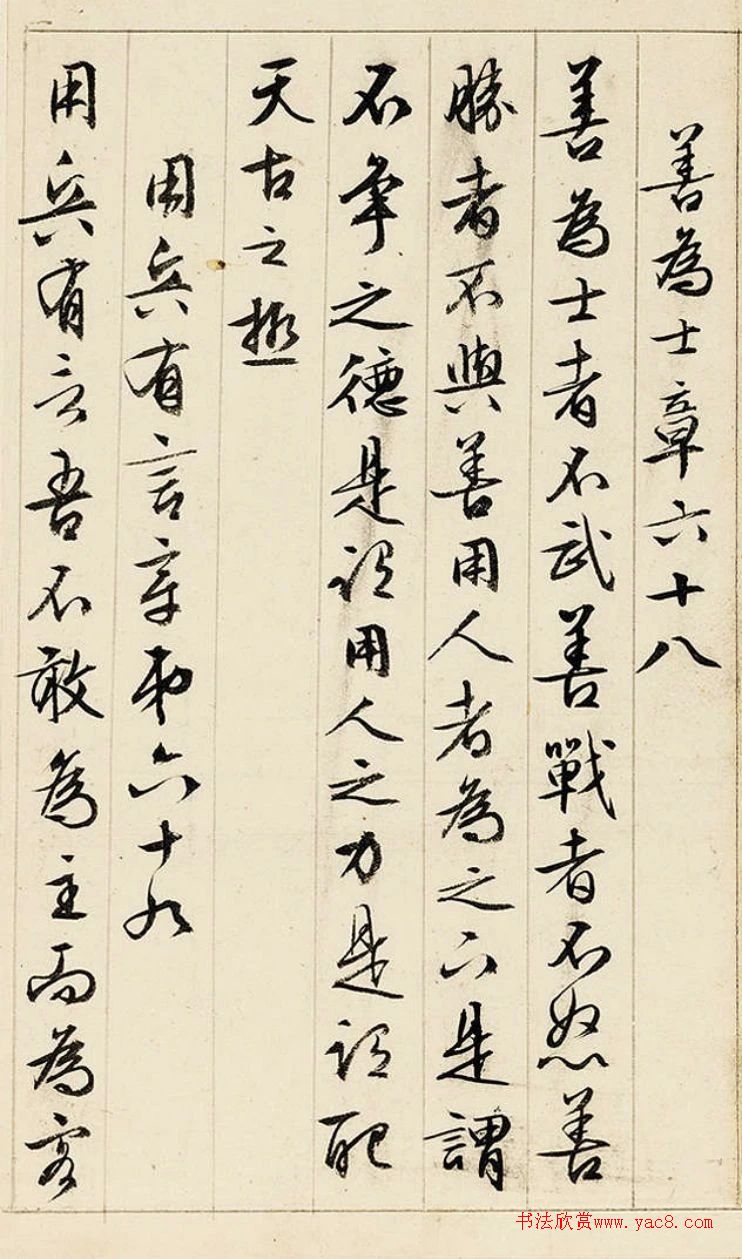 善為士章六十八
善為士者不武善戰者不怒善
勝者不與善用人者為之下是謂
不爭之德是謂用人之力是謂配
天古之極
用兵有言章第六十九
用兵有言吾不敢為主而為客
书法欣赏www.yac8.com